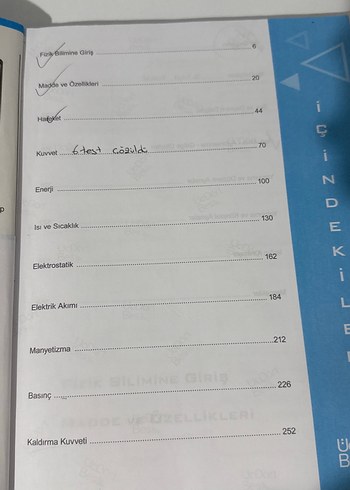 Fizik Bilimine Giriş 6
Madde ve Özellikleri 26
Hareket 44
Kuvvet 6 test çözüldü 70
Enerji 100
Isı ve Sıcaklık 130
Elektrostatik 162
Elektrik Akımı 184
Manyetizma 212
Basınç 226
Kaldırma Kuvveti 252
İÇİNDEKİLE